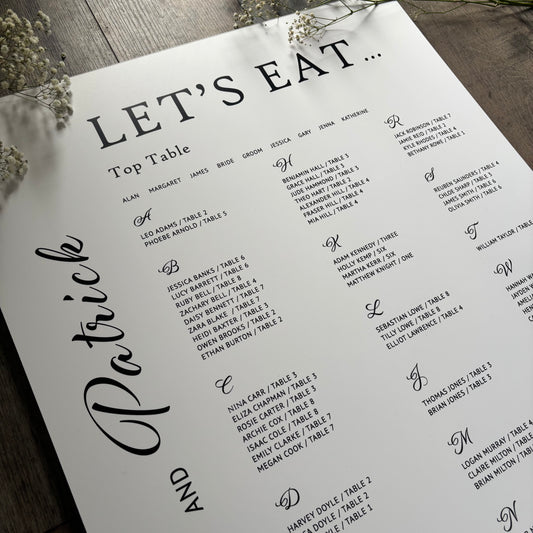 LET'S EAT...
Top Table
ALAN MARGARET JAMES BRIDE GROOM JESSICA GARY JENNA KATHERINE
A
LEO ADAMS / TABLE 2
PHOEBE ARNOLD / TABLE 5
B
JESSICA BANKS / TABLE 6
LUCY BARRETT / TABLE 6
RUBY BELL / TABLE 8
ZACHARY BELL / TABLE 4
DAISY BENNETT / TABLE 7
ZARA BLAKE / TABLE 7
HEIDI BAXTER / TABLE 3
OWEN BROOKS / TABLE 2
ETHAN BURTON / TABLE 2
C
NINA CARR / TABLE 3
ELIZA CHAPMAN / TABLE 3
ROSIE CARTER / TABLE 3
ARCHIE COX / TABLE 8
ISAAC COLE / TABLE 8
EMILY CLARKE / TABLE 7
MEGAN COOK / TABLE 7
D
HARVEY DOYLE / TABLE 2
DOYLE / TABLE 2
/ TABLE 1
H
BENJAMIN HALL / TABLE 3
GRACE HALL / TABLE 3
JUDE HAMMOND / TABLE 5
THEO HART / TABLE 2
ALEXANDER HILL / TABLE 4
FRASER HILL / TABLE 4
MIA HILL / TABLE 4
K
ADAM KENNEDY / THREE
HOLLY KEMP / SIX
MARTHA KERR / SIX
MATTHEW KNIGHT / ONE
L
SEBASTIAN LOWE / TABLE 8
TILLY LOWE / TABLE 8
ELLIOT LAWRENCE / TABLE 4
J
THOMAS JONES / TABLE 3
BRIAN JONES / TABLE 3
M
LOGAN MURRAY / TABLE 4
CLAIRE MILTON / TABLE
BRIAN MILTON / TABLE
N
R
JACK ROBINSON / TABLE 7
JAMIE REID / TABLE 2
KYLE RHODES / TABLE 4
BETHANY ROWE / TABLE 1
S
REUBEN SAUNDERS / TABLE 4
CHLOE SHARP / TABLE 3
JAMES SMITH / TABLE 6
OLIVIA SMITH / TABLE 6
T
WILLIAM TAYLOR / TABLE
W
HANNAH
AND Patrick